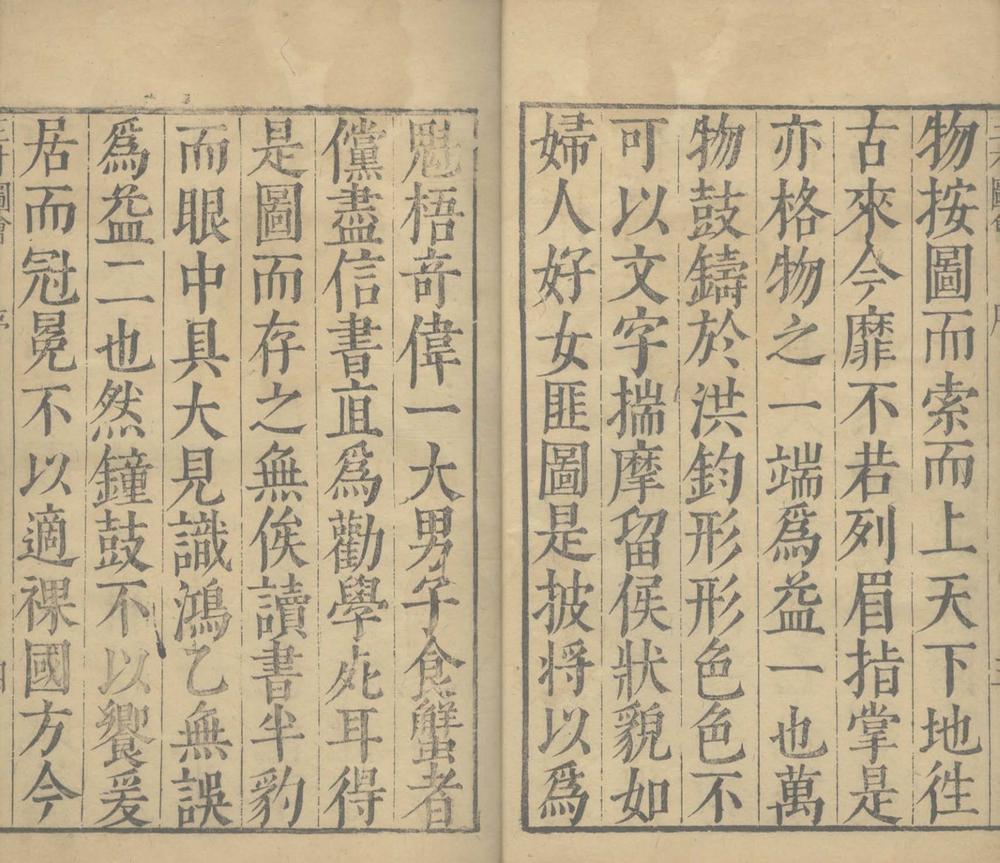 物按圖而索而上天下地徃
古來今靡不若列眉指掌是
亦格物之一端爲益一也萬
物鼓鑄於洪鈞形形色色不
可以文字揣摩留侯狀貌如
婦人好女匪圖是披將以爲
魁梧奇偉一大男子食蟹者
儻盡信書直爲勸學死耳得
是圖而存之無俟讀書半豹
而眼中具大見識鴻乙無誤
爲益二也然鐘鼓不以饗爰
居而冠冕不以適裸國方今